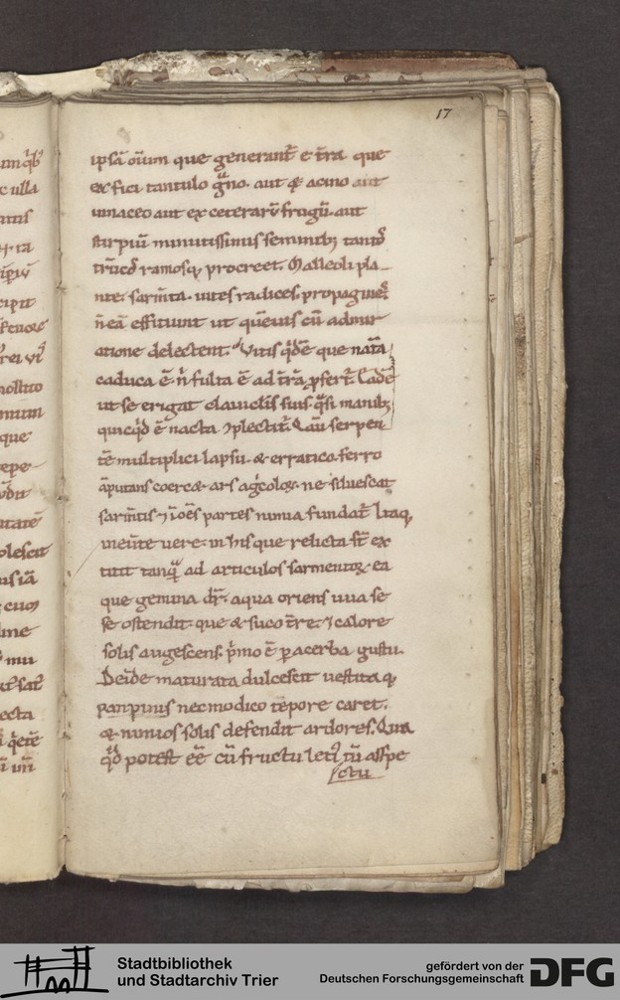 17
ipsā om̄um que generant̄ e t̄ra que
ex fici tantulo g̃no. aut & acino aut
uinaceo aut ex ceterarū frugū. aut
stirpiū minutissimis seminibȝ tantoꝝ
trūcoꝝ ramosqȝ procreet. Malleoli pla
nte. sarm̄ta. uites radices. propagines
n̄ ea efficiunt ut quēuis cū admir
atione delectent. Vitis qͥdē que nat̄a
caduca ē. n̄ fulta ē ad t̄rā ꝓfert̄. Eadē
ut se erigat clauiclis suis. qͣsi manibȝ
quicqͥd ē nacta ꝯplectit̄. Quā serpen
tē multiplici lapsu. & erratico. ferro
āputans coercet ars agͥcolaꝝ. ne siluescat
sarm̄tis ⁊ ī om̄es partes nimia fundat̄. Itaqȝ
ineūte uere in his que relicta st̄ ex
titit tanqͣ ad articulos sarmentoꝝ ea
que gemma dr̄. a qua oriens uua se
se ostendit. que & suco t̄re. ⁊ calore
solis augescens. pͥmo ē ꝑacerba gustu.
Deīde maturata dulcescit uestitaqȝ
pampinis nec modico tēpore caret.
& nimios solis defendit ardores. Qua
qͥd potest eē cū fructu letiꝰ. tū aspe
ctu
Stadtbibliothek
und Stadtarchiv Trier
gefördert von der
Deutschen Forschungsgemeinschaft
DFG